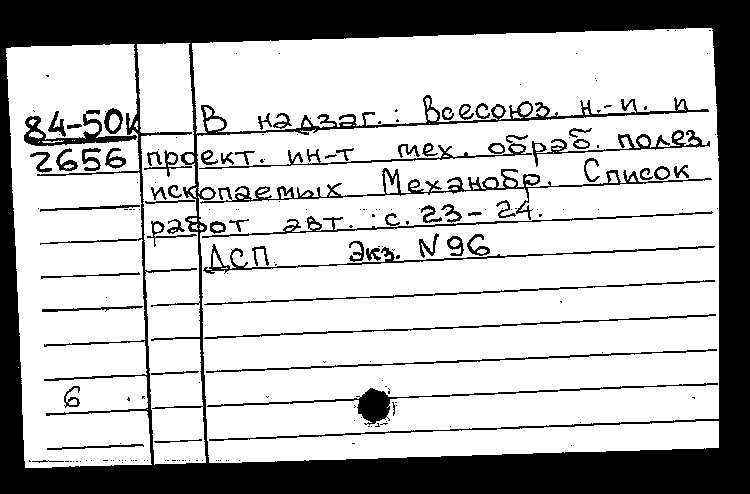 84-50к В надзаг.: Всесоюз. н.-и. и
2656 проект. ин-т мех. обраб. полез.
ископаемых Механобр. Список
работ авт.: с. 23-24.
ДСП. Экз. N96.
6